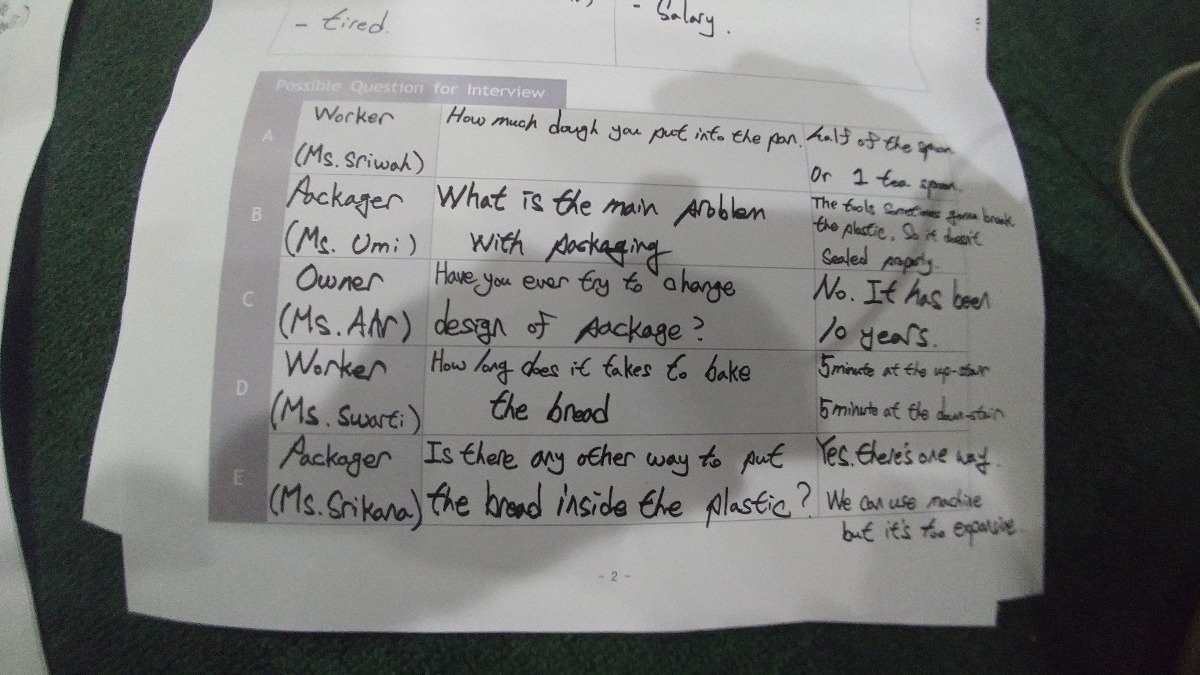 - tired.
- Salary.
Possible Question for Interview
A
Worker
(Ms. Sriwah)
How much dough you put into the pan.
half of the spoon
Or 1 tea spoon.
B
Packager
(Ms. Umi)
What is the main problem
with packaging
The tools sometimes gonna break
the plastic, So it doesn't
Sealed properly.
C
Owner
(Ms. )
Have you ever try to change
design of package?
No. It has been
10 years.
D
Worker
(Ms. Swarti)
How long does it takes to bake
the bread
5 minute at the up-stair
5 minute at the down-stair
E
Packager
(Ms. Srikana)
Is there any other way to put
the bread inside the plastic?
Yes. there's one way.
We can use machine
but it's too expensive
- 2 -